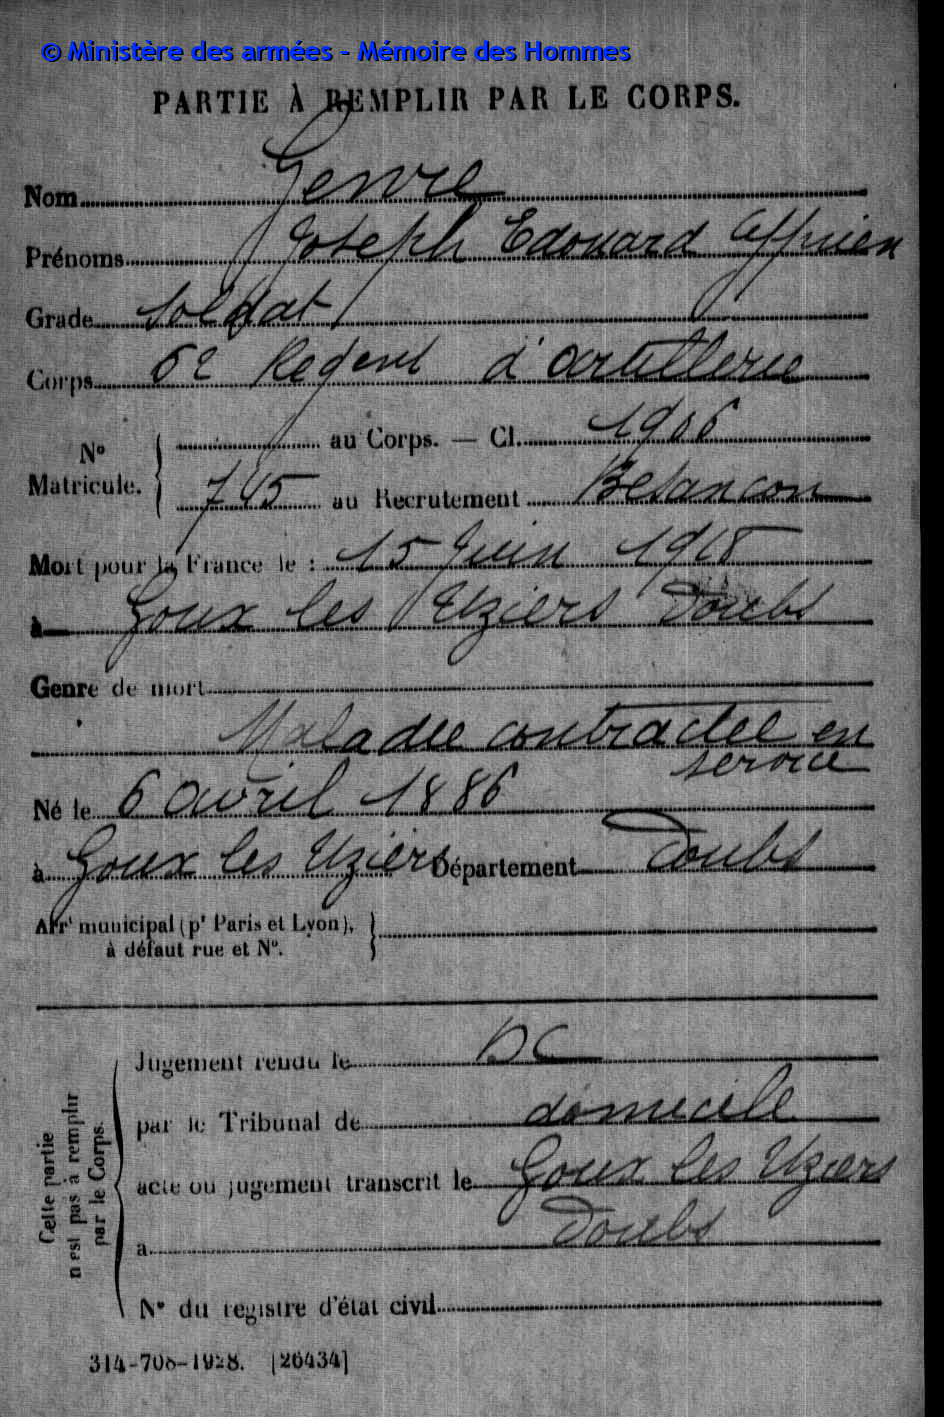 © Ministère des armées - Mémoire des Hommes
PARTIE À REMPLIR PAR LE CORPS.
Nom Genre
Prénoms Joseph Edouard
Grade Soldat
Corps 6e Regent d'artillerie
Nº Matricule. { au Corps. — Cl. 1906
745 au Recrutement Besancon
Mort pour la France le : 15 Juin 1918
à Goux les Uziers Doubs
Genre de mort
Maladie contractee en
service
Né le 6 avril 1886
à Goux les Uziers Département Doubs
Arrt municipal (pr Paris et Lyon),
à défaut rue et Nº. }
Cette partie
n'est pas à remplir
par le Corps.
Jugement rendu le DC
par le Tribunal de domicile
acte ou jugement transcrit le Goux les Uziers
à Doubs
Nº du registre d'état civil
314-708-1928. [26434]